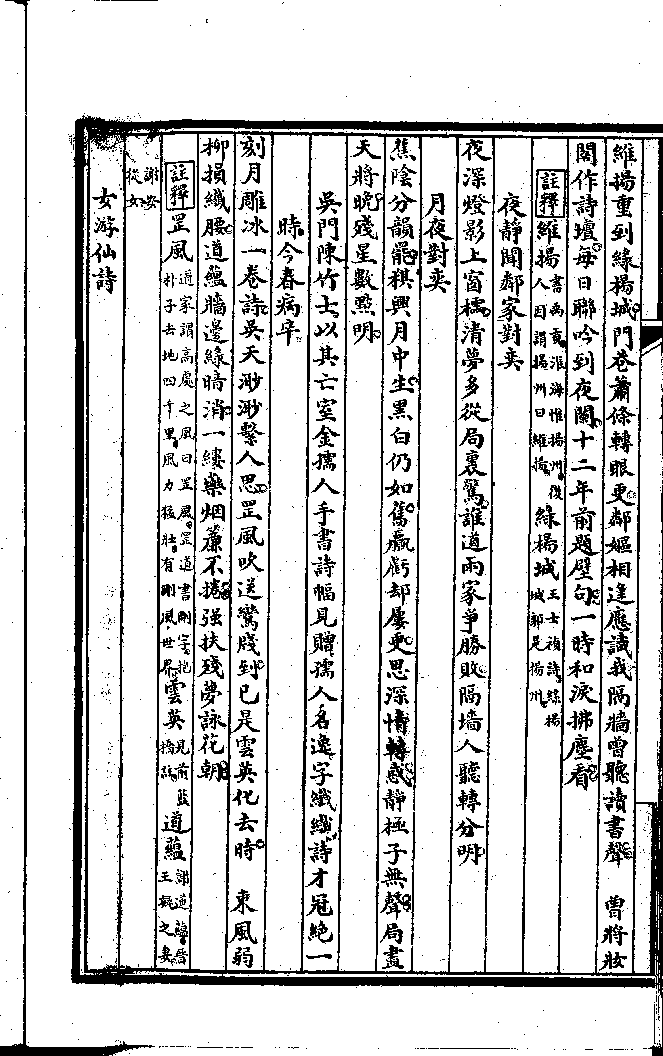 維揚重到綠楊城門巷蕭條轉眼更鄰嫗相逢應識我隔牆曾聽讀書聲　曾將妝
閣作詩壇每日聯吟到夜闌十二年前題壁句一時和淚拂塵看
註釋維揚書禹貢淮海惟揚州後人因謂揚州曰維揚綠楊城王士禎詩綠楊城郭是揚州
夜靜聞鄰家對奕
夜深燈影上窗櫺清夢多從局裏驚誰道兩家爭勝敗隔墻人聽轉分明
月夜對奕
蕉陰分韻罷棋興月中生黑白仍如舊贏虧却屢更思深情轉惑靜極子無聲局畫
天將晚殘星數點明
吳門陳竹士以其亡室金孺人手書詩幅見贈孺人名逸字纖纖詩才冠絶一
時今春病卒
刻月雕冰一卷詩吳天渺渺繫人思罡風吹送鸞牋到已是雲英化去時　東風弱
柳損纖腰道蘊牆邊綠暗消一縷藥烟簾不捲强扶殘夢詠花朝
註釋罡風道家謂高處之風曰罡風罡道書剛字抱朴子去地四千里風力猛壯有剛風世界雲英見前藍橋註道蘊謝道蘊晉王凝之妻
謝安從女
女游仙詩